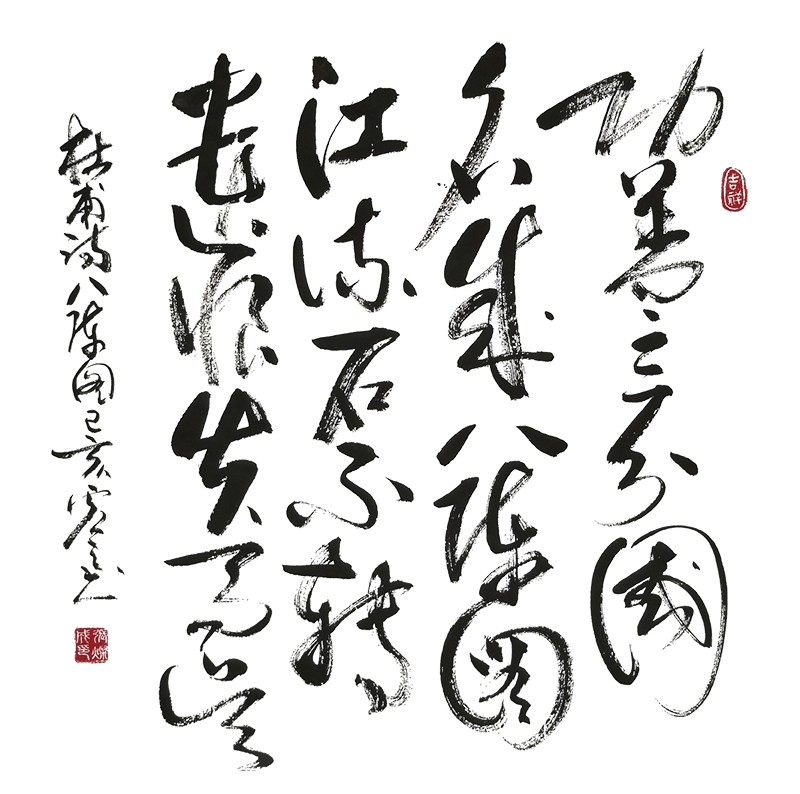 功蓋三分國
名成八陣圖
江流石不轉
遺恨失吞吳
杜甫詩八陣圖己亥
吉祥